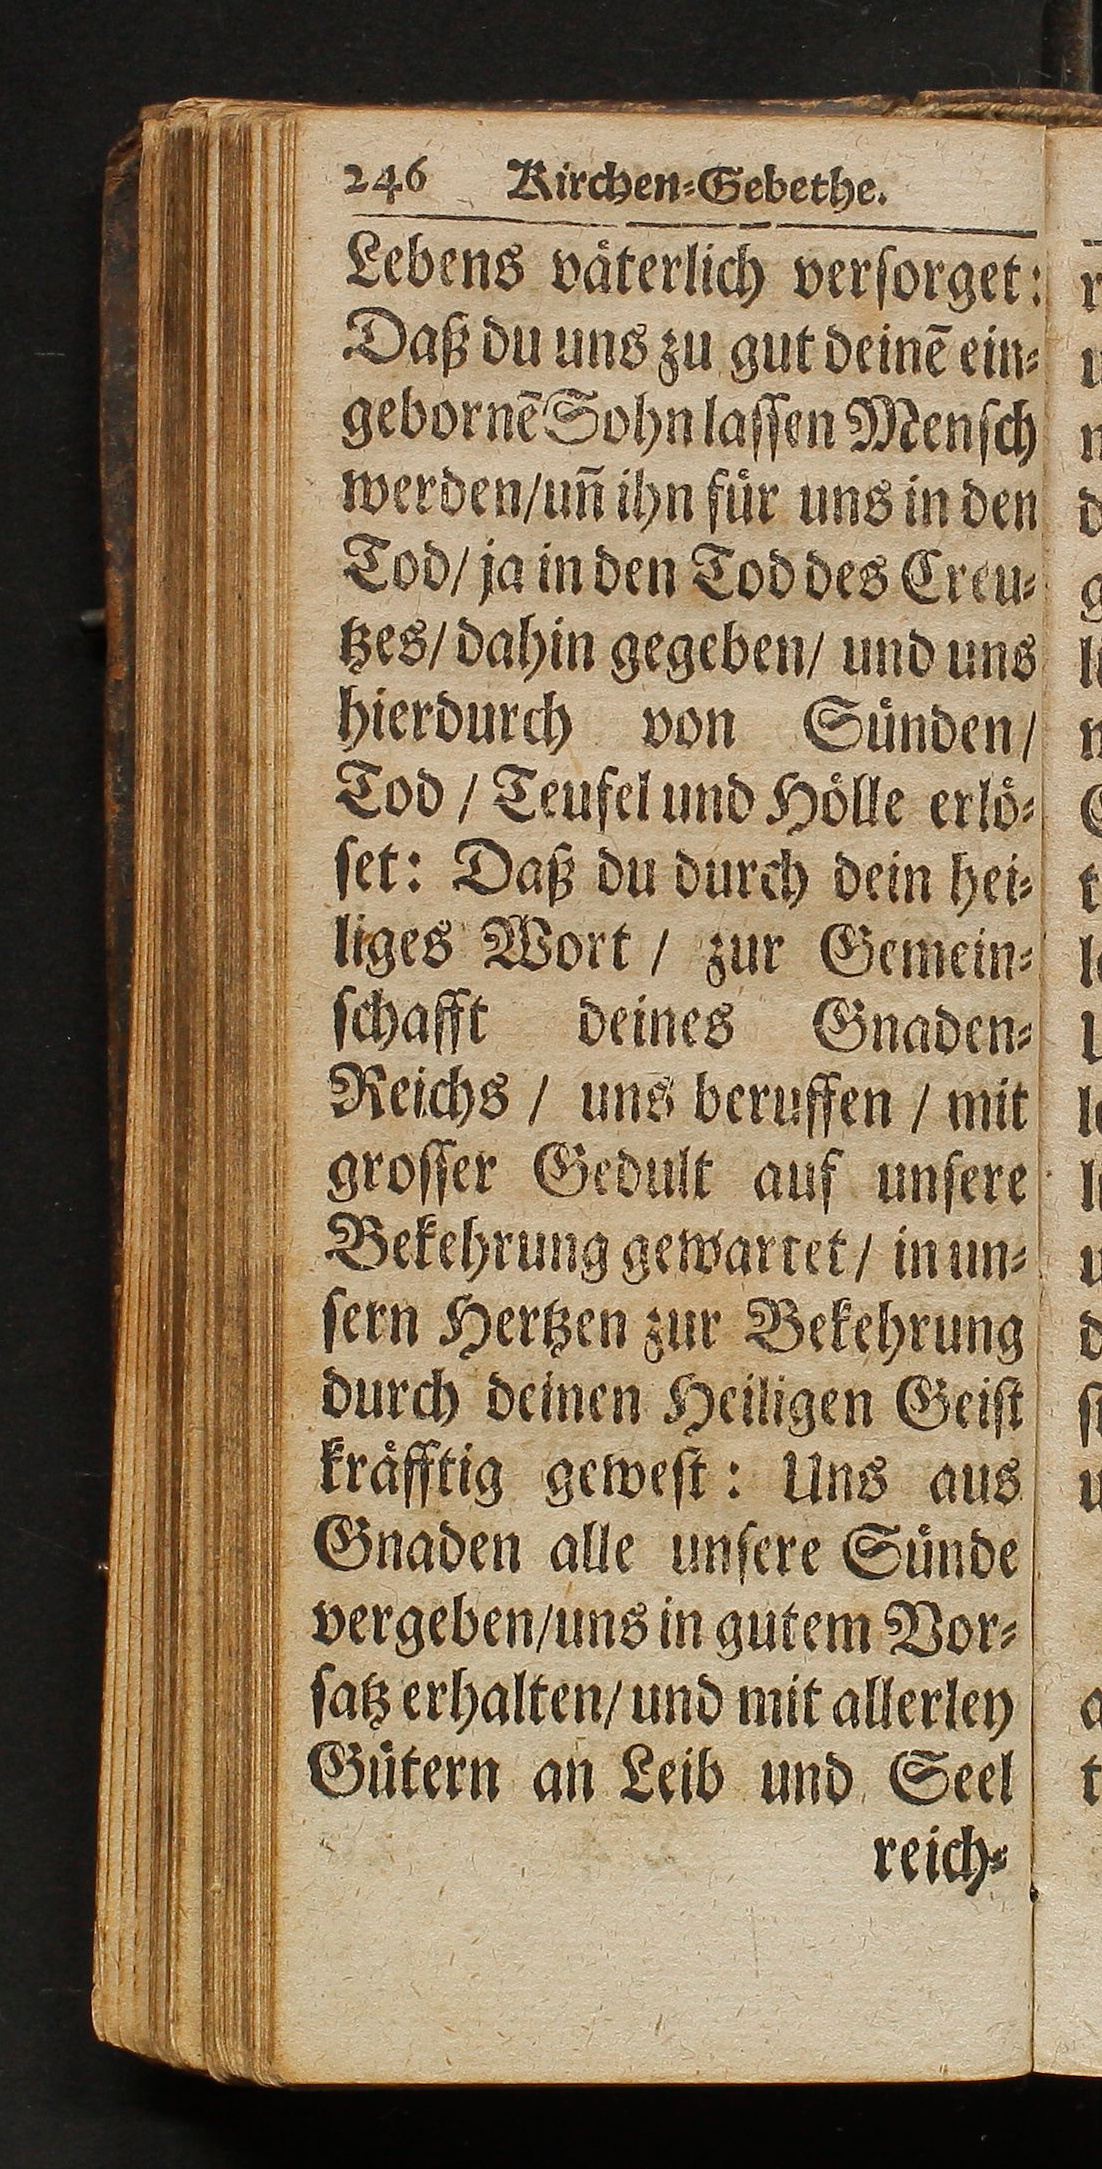 246 Kirchen-Gebethe.
Lebens väterlich versorget:
Daß du uns zu gut deinē ein-
gebornē Sohn lassen Mensch
werden/ uñ ihn für uns in den
Tod/ ja in den Tod des Creu-
tzes/ dahin gegeben/ und uns
hierdurch von Sünden/
Tod / Teufel und Hölle erlö-
set: Daß du durch dein hei-
liges Wort / zur Gemein-
schafft deines Gnaden-
Reichs / uns beruffen / mit
grosser Gedult auf unsere
Bekehrung gewartet / in un-
sern Hertzen zur Bekehrung
durch deinen Heiligen Geist
kräfftig gewest: Uns aus
Gnaden alle unsere Sünde
vergeben/ uns in gutem Vor-
satz erhalten/ und mit allerley
Gütern an Leib und Seel
reich-